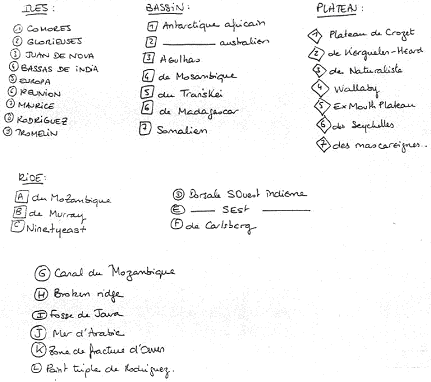 ILES :
1 COMORES
2 GLORIEUSES
3 JUAN DE NOVA
4 BASSAS DE INDIA
5 EUROPA
6 REUNION
7 MAURICE
8 RODRIGUEZ
9 TROMELIN
BASSIN :
1 Antarctique africain
2 ________ australien
3 Agulhas
4 de Mosambique
5 du Transkei
6 de Madagascar
7 Somalien
PLATEAU :
1 Plateau de Crozet
2 de Kerguelen-Heard
3 de Naturaliste
4 Wallaby
5 Ex Mouth Plateau
6 des Seychelles
7 des mascareignes..
RIDE :
A du Mozambique
B de Murray
C Ninetyeast
D Dorsale SOuest indienne
E ____ SEst ______
F de Carlsberg
G Canal du Mozambique
H Broken ridge
I Fosse de Java
J Mer d'Arabie
K Zone de fracture d'Owen
L Point triple de Rodriguez.